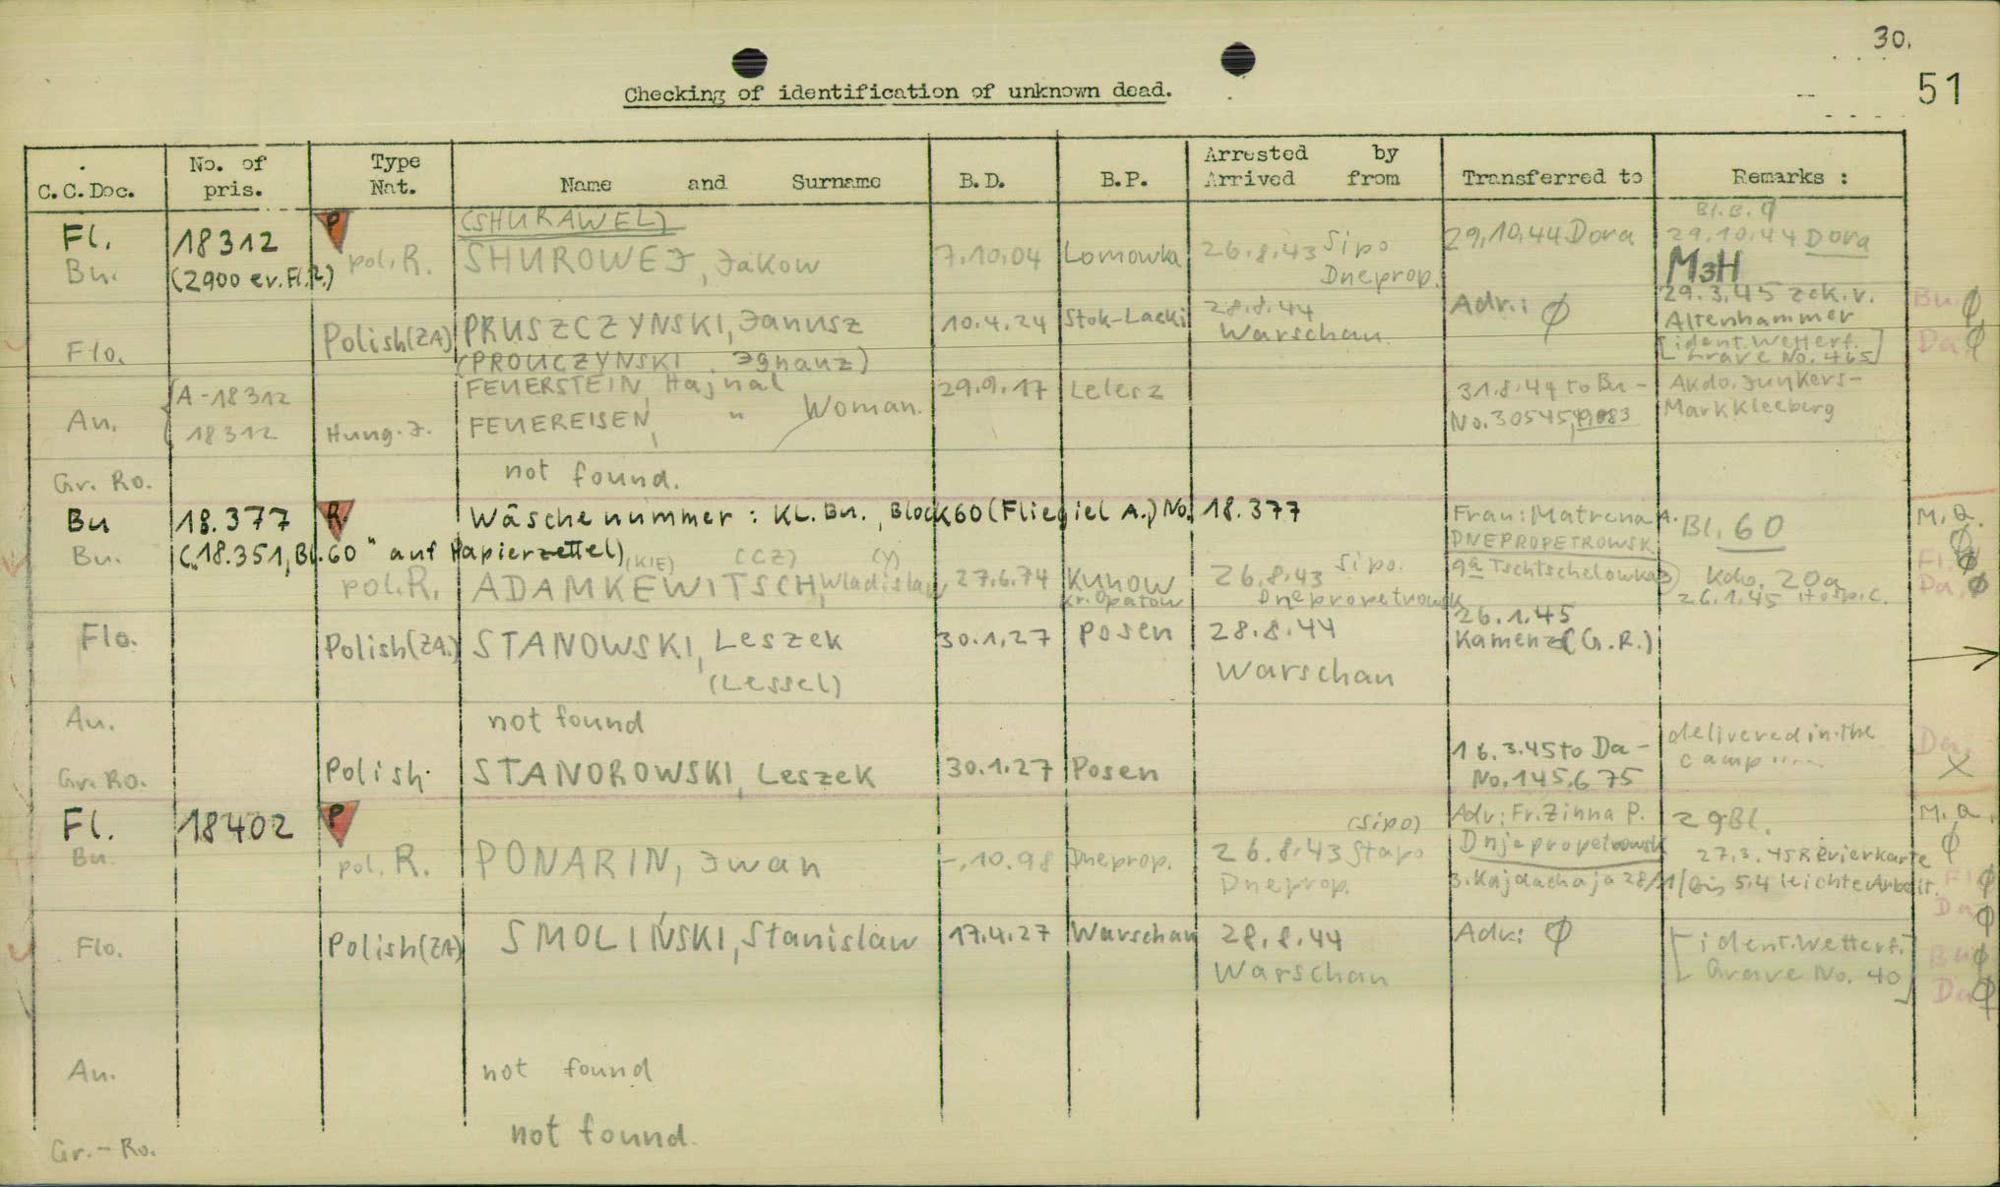 30.
51
Checking of identification of unknown dead.
C.C.Doc. No. of pris. Type Nat. Name and Surname B.D. B.P. Arrested by Arrived from Transferred to Remarks :
Fl. 18312 P (SHURAWEL) Bl. B. 9
Bu. (2900 ev. Fl.?.) pol. R. SHUROWEJ, Jakow 7.10.04 Lomowka 26.8.43 Sipo Dneprop. 29.10.44 Dora 29.10.44 Dora
M3H
Flo. Polish(ZA) PRUSZCZYNSKI, Janusz 10.4.24 Stok-Lacki 28.8.44 Warschau Adr.: ϕ 29.3.45 zck. v. Altenhammer Bu ϕ
(PROUCZYNSKI, Jgnanz) [ident. Wetterf. Grave No. 465] Da ϕ
An. A-18312 FEUERSTEIN, Hajnal 29.9.17 Lelesz 31.8.44 to Bu- Akdo. Junkers-
18312 Hung. J. FEUEREISEN, " Woman. No. 30545, Markkleeberg
Gr. Ro. not found.
Bu 18.377 R Wäschenummer: KL. Bu., Block 60 (Fliegiel A.) No. 18.377 Frau: Matrena A. Bl. 60 M.a. ϕ
Bu. (18.351, Bl. 60" auf Papierzettel) (KIE) (CZ) (Y) DNEPROPETROWSK Fl. ϕ
pol. R. ADAMKEWITSCH, Wladislaw 27.6.74 Kunow Kr. Opatow 26.8.43 Sipo. Dnepropetrowsk 9a Tschtschelowka Kdo. 20a 26.1.45 Hospic. Da ϕ
Flo. Polish(ZA.) STANOWSKI, Leszek 30.1.27 Posen 28.8.44 26.1.45 Kamenz (G.R.)
(Lessel) Warschau
An. not found
Gr. Ro. Polish. STANOROWSKI, Leszek 30.1.27 Posen 16.3.45 to Da- No. 145.675 delivered in the camp .... Da. X
Fl. 18402 P (Sipo) Adr: Fr. Zinna P. 29 Bl. M.a. ϕ
Bu. pol. R. PONARIN, Jwan -.10.98 Dneprop. 26.8.43 Stapo Dneprop. Dnjepropetrowsk 27.3.45 Revierkarte
3. Kajdachaja 28/1 bis 5.4 leichte Arbeit. Fl ϕ Da ϕ
Flo. Polish(ZA) SMOLIŃSKI, Stanislaw 17.4.27 Warschau 28.8.44 Warschau Adr: ϕ [ident. Wetterf. Grave No. 40] Bu ϕ Da ϕ
An. not found
Gr.-Ro. not found.